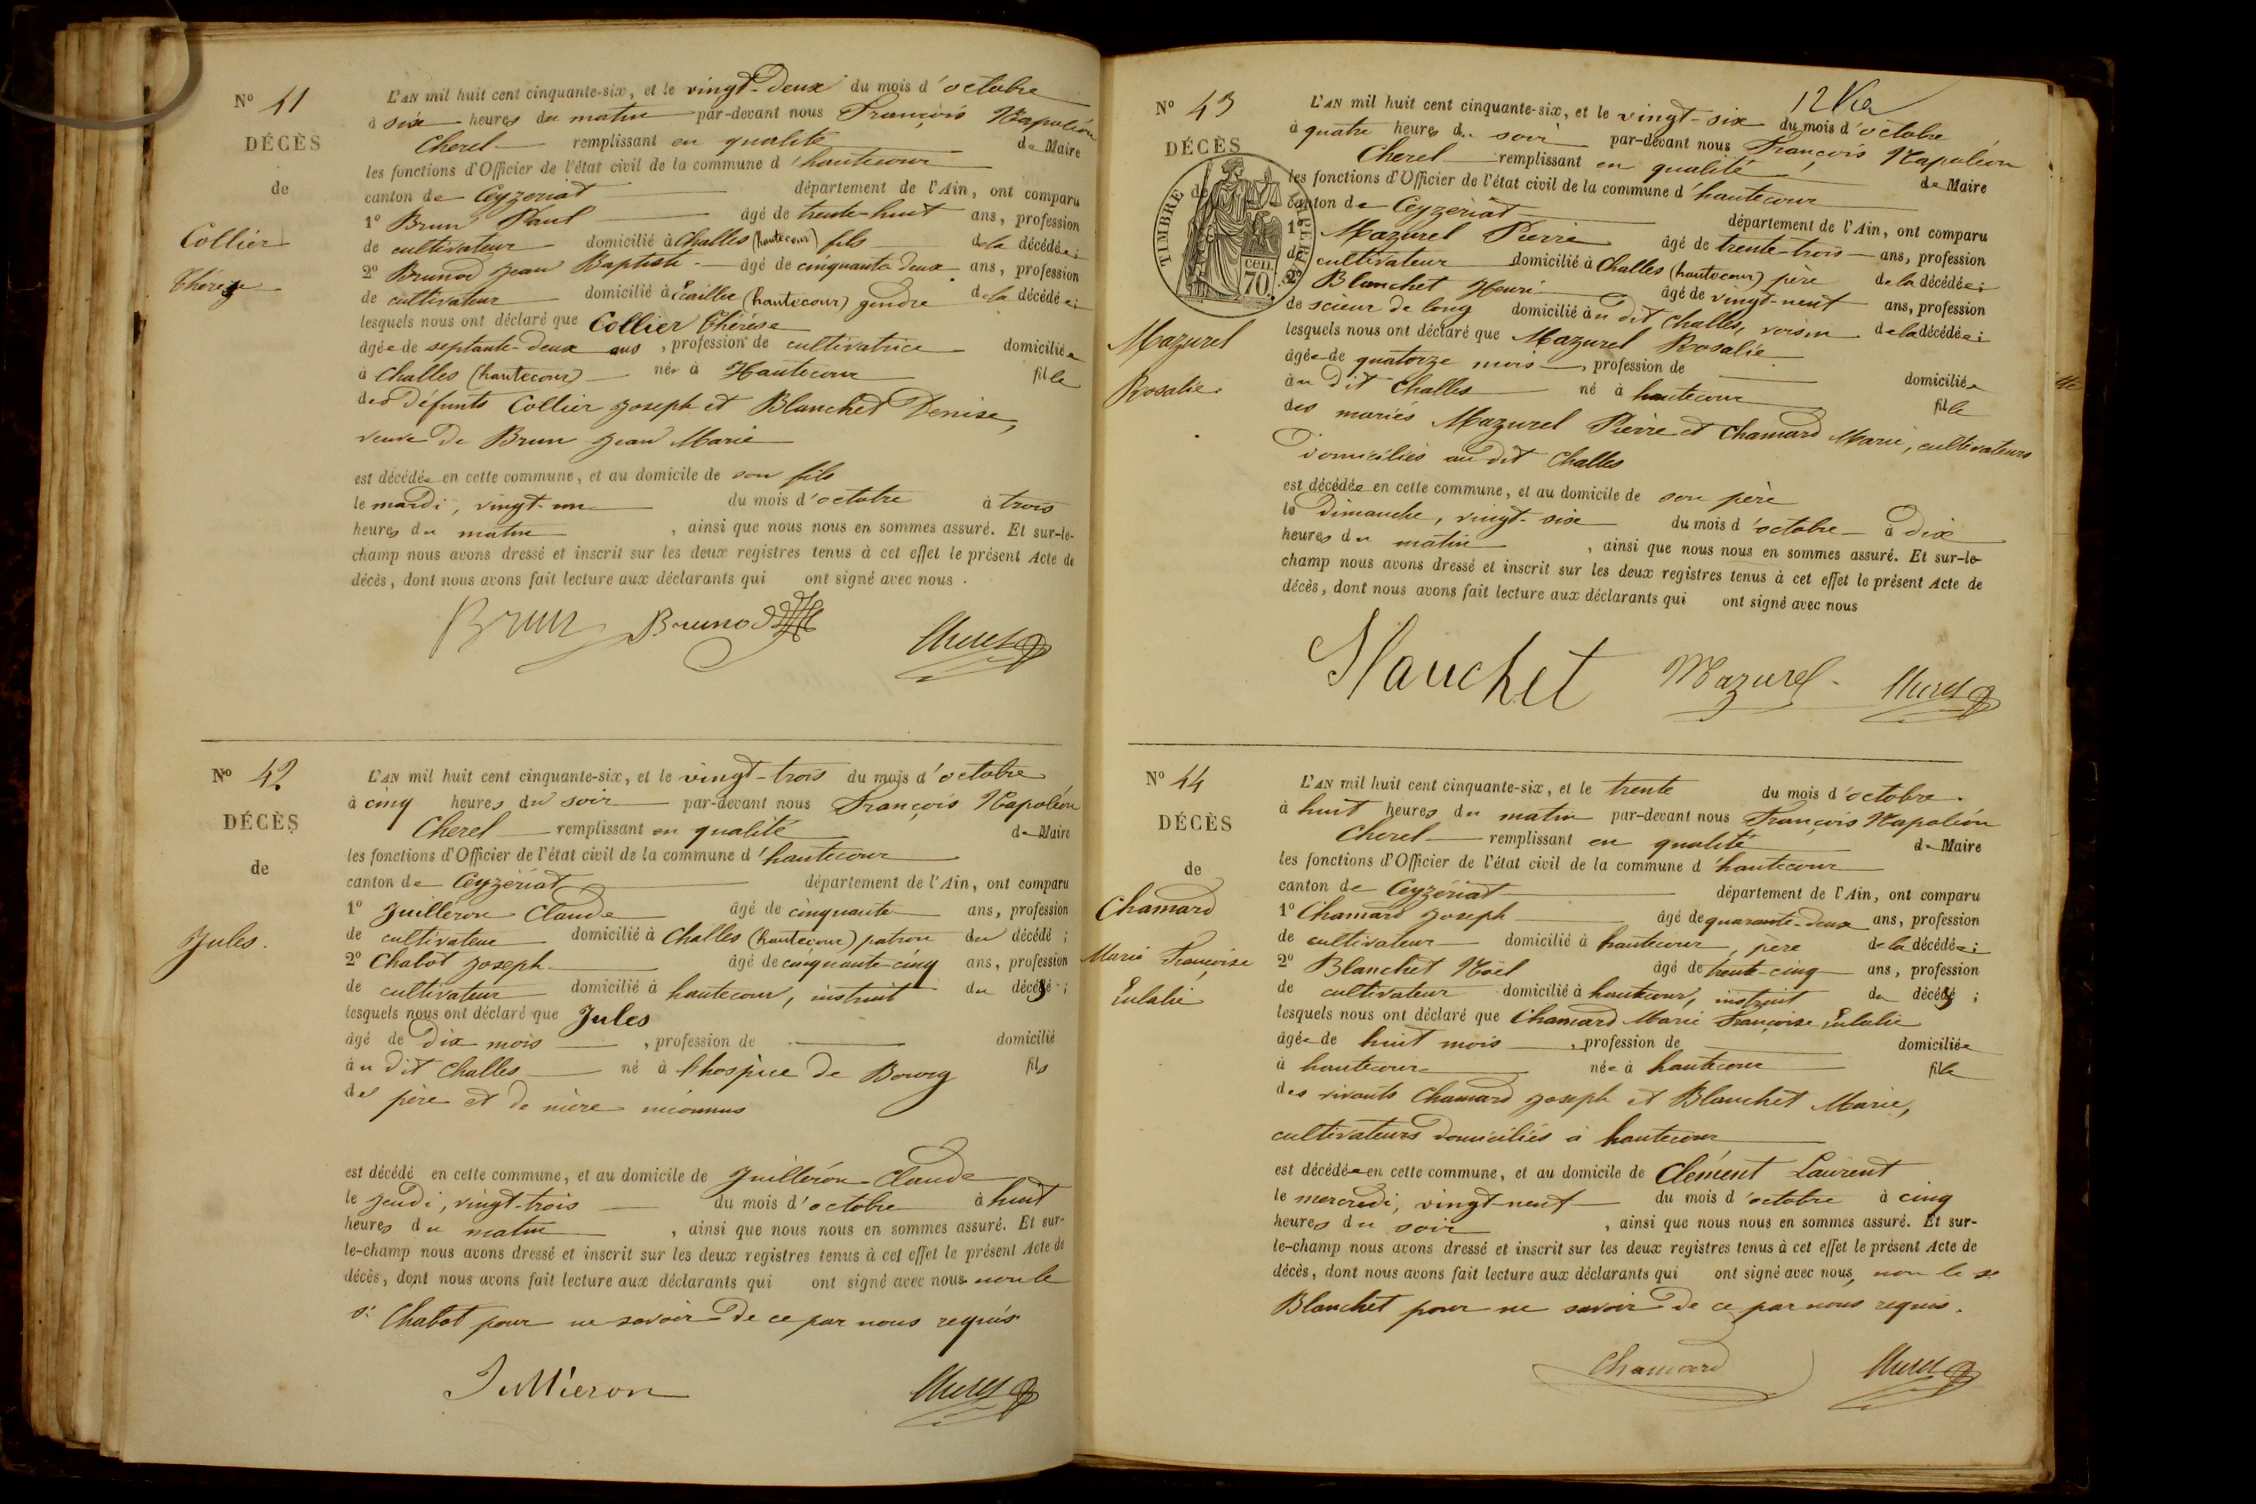 N° 41
DÉCÈS
de
Collier
Thérèse
L'AN mil huit cent cinquante-six, et le vingt-deux du mois d'octobre
à six heures du matin par-devant nous François Napoléon
Cherel remplissant en qualité de Maire
les fonctions d'Officier de l'état civil de la commune d'hautecour
canton de Ceyzériat département de l'Ain, ont comparu
1° Brun Paul âgé de trente-huit ans, profession
de cultivateur domicilié à Challes (hautecour) fils de la décédée;
2° Brunod Jean Baptiste âgé de cinquante deux ans, profession
de cultivateur domicilié à (hautecour) gendre de la décédée;
lesquels nous ont déclaré que Collier Thérèse
âgée de septante-deux ans, profession de cultivatrice domiciliée
à Challes (hautecour) née à Hautecour fille
des défunts Collier Joseph et Blanchet Denise,
veuve de Brun Jean Marie
est décédée en cette commune, et au domicile de son fils
le mardi, vingt-un du mois d'octobre à trois
heures du matin, ainsi que nous nous en sommes assuré. Et sur-le-
champ nous avons dressé et inscrit sur les deux registres tenus à cet effet le présent Acte de
décès, dont nous avons fait lecture aux déclarants qui ont signé avec nous.
Brun Brunod Cherel
N° 42
DÉCÈS
de
Jules.
L'AN mil huit cent cinquante-six, et le vingt-trois du mois d'octobre
à cinq heures du soir par-devant nous François Napoléon
Cherel remplissant en qualité de Maire
les fonctions d'Officier de l'état civil de la commune d'hautecour
canton de Ceyzériat département de l'Ain, ont comparu
1° Juilléron Claude âgé de cinquante ans, profession
de cultivateur domicilié à Challes (hautecour) patron du décédé;
2° Chabot Joseph âgé de cinquante-cinq ans, profession
de cultivateur domicilié à hautecour, instruit du décès;
lesquels nous ont déclaré que Jules
âgé de dix mois, profession de domicilié
au dit Challes né à l'hospice de Bourg fils
de père et de mère inconnus
est décédé en cette commune, et au domicile de Juilléron Claude
le jeudi, vingt-trois du mois d'octobre à huit
heures du matin, ainsi que nous nous en sommes assuré. Et sur-
le-champ nous avons dressé et inscrit sur les deux registres tenus à cet effet le présent Acte de
décès, dont nous avons fait lecture aux déclarants qui ont signé avec nous non le
sr Chabot pour ne savoir de ce par nous requis
Jullieron Cherel
12
N° 43
DÉCÈS
de
TIMBRE IMPERIAL
70 CEN.
Mazurel
Rosalie
L'AN mil huit cent cinquante-six, et le vingt-six du mois d'octobre
à quatre heures du soir par-devant nous François Napoléon
Cherel remplissant en qualité de Maire
les fonctions d'Officier de l'état civil de la commune d'hautecour
canton de Ceyzériat département de l'Ain, ont comparu
1° Mazurel Pierre âgé de trente-trois ans, profession
de cultivateur domicilié à Challes (hautecour) père de la décédée;
2° Blanchet Henri âgé de vingt-neuf ans, profession
de scieur de long domicilié au dit Challes, voisin de la décédée;
lesquels nous ont déclaré que Mazurel Rosalie
âgée de quatorze mois, profession de domiciliée
au dit Challes né à hautecour fille
des mariés Mazurel Pierre et Chamard Marie, cultivateurs
domiciliés au dit Challes
est décédée en cette commune, et au domicile de son père
le Dimanche, vingt-six du mois d'octobre à dix
heures du matin, ainsi que nous nous en sommes assuré. Et sur-le-
champ nous avons dressé et inscrit sur les deux registres tenus à cet effet le présent Acte de
décès, dont nous avons fait lecture aux déclarants qui ont signé avec nous
Blanchet Mazurel Cherel
N° 44
DÉCÈS
de
Chamard
Marie Françoise
Eulalie
L'AN mil huit cent cinquante-six, et le trente du mois d'octobre.
à huit heures du matin par-devant nous François Napoléon
Cherel remplissant en qualité de Maire
les fonctions d'Officier de l'état civil de la commune d'hautecour
canton de Ceyzériat département de l'Ain, ont comparu
1° Chamard Joseph âgé de quarante-deux ans, profession
de cultivateur domicilié à hautecour, père de la décédée;
2° Blanchet Noël âgé de trente-cinq ans, profession
de cultivateur domicilié à hautecour, instruit du décès;
lesquels nous ont déclaré que Chamard Marie Françoise Eulalie
âgée de huit mois, profession de domiciliée
à hautecour née à hautecour fille
des vivants Chamard Joseph et Blanchet Marie,
cultivateurs domiciliés à hautecour
est décédée en cette commune, et au domicile de Clément Laurent
le mercredi, vingt-neuf du mois d'octobre à cinq
heures du soir, ainsi que nous nous en sommes assuré. Et sur-
le-champ nous avons dressé et inscrit sur les deux registres tenus à cet effet le présent Acte de
décès, dont nous avons fait lecture aux déclarants qui ont signé avec nous, non le sr
Blanchet pour ne savoir de ce par nous requis.
Chamard Cherel